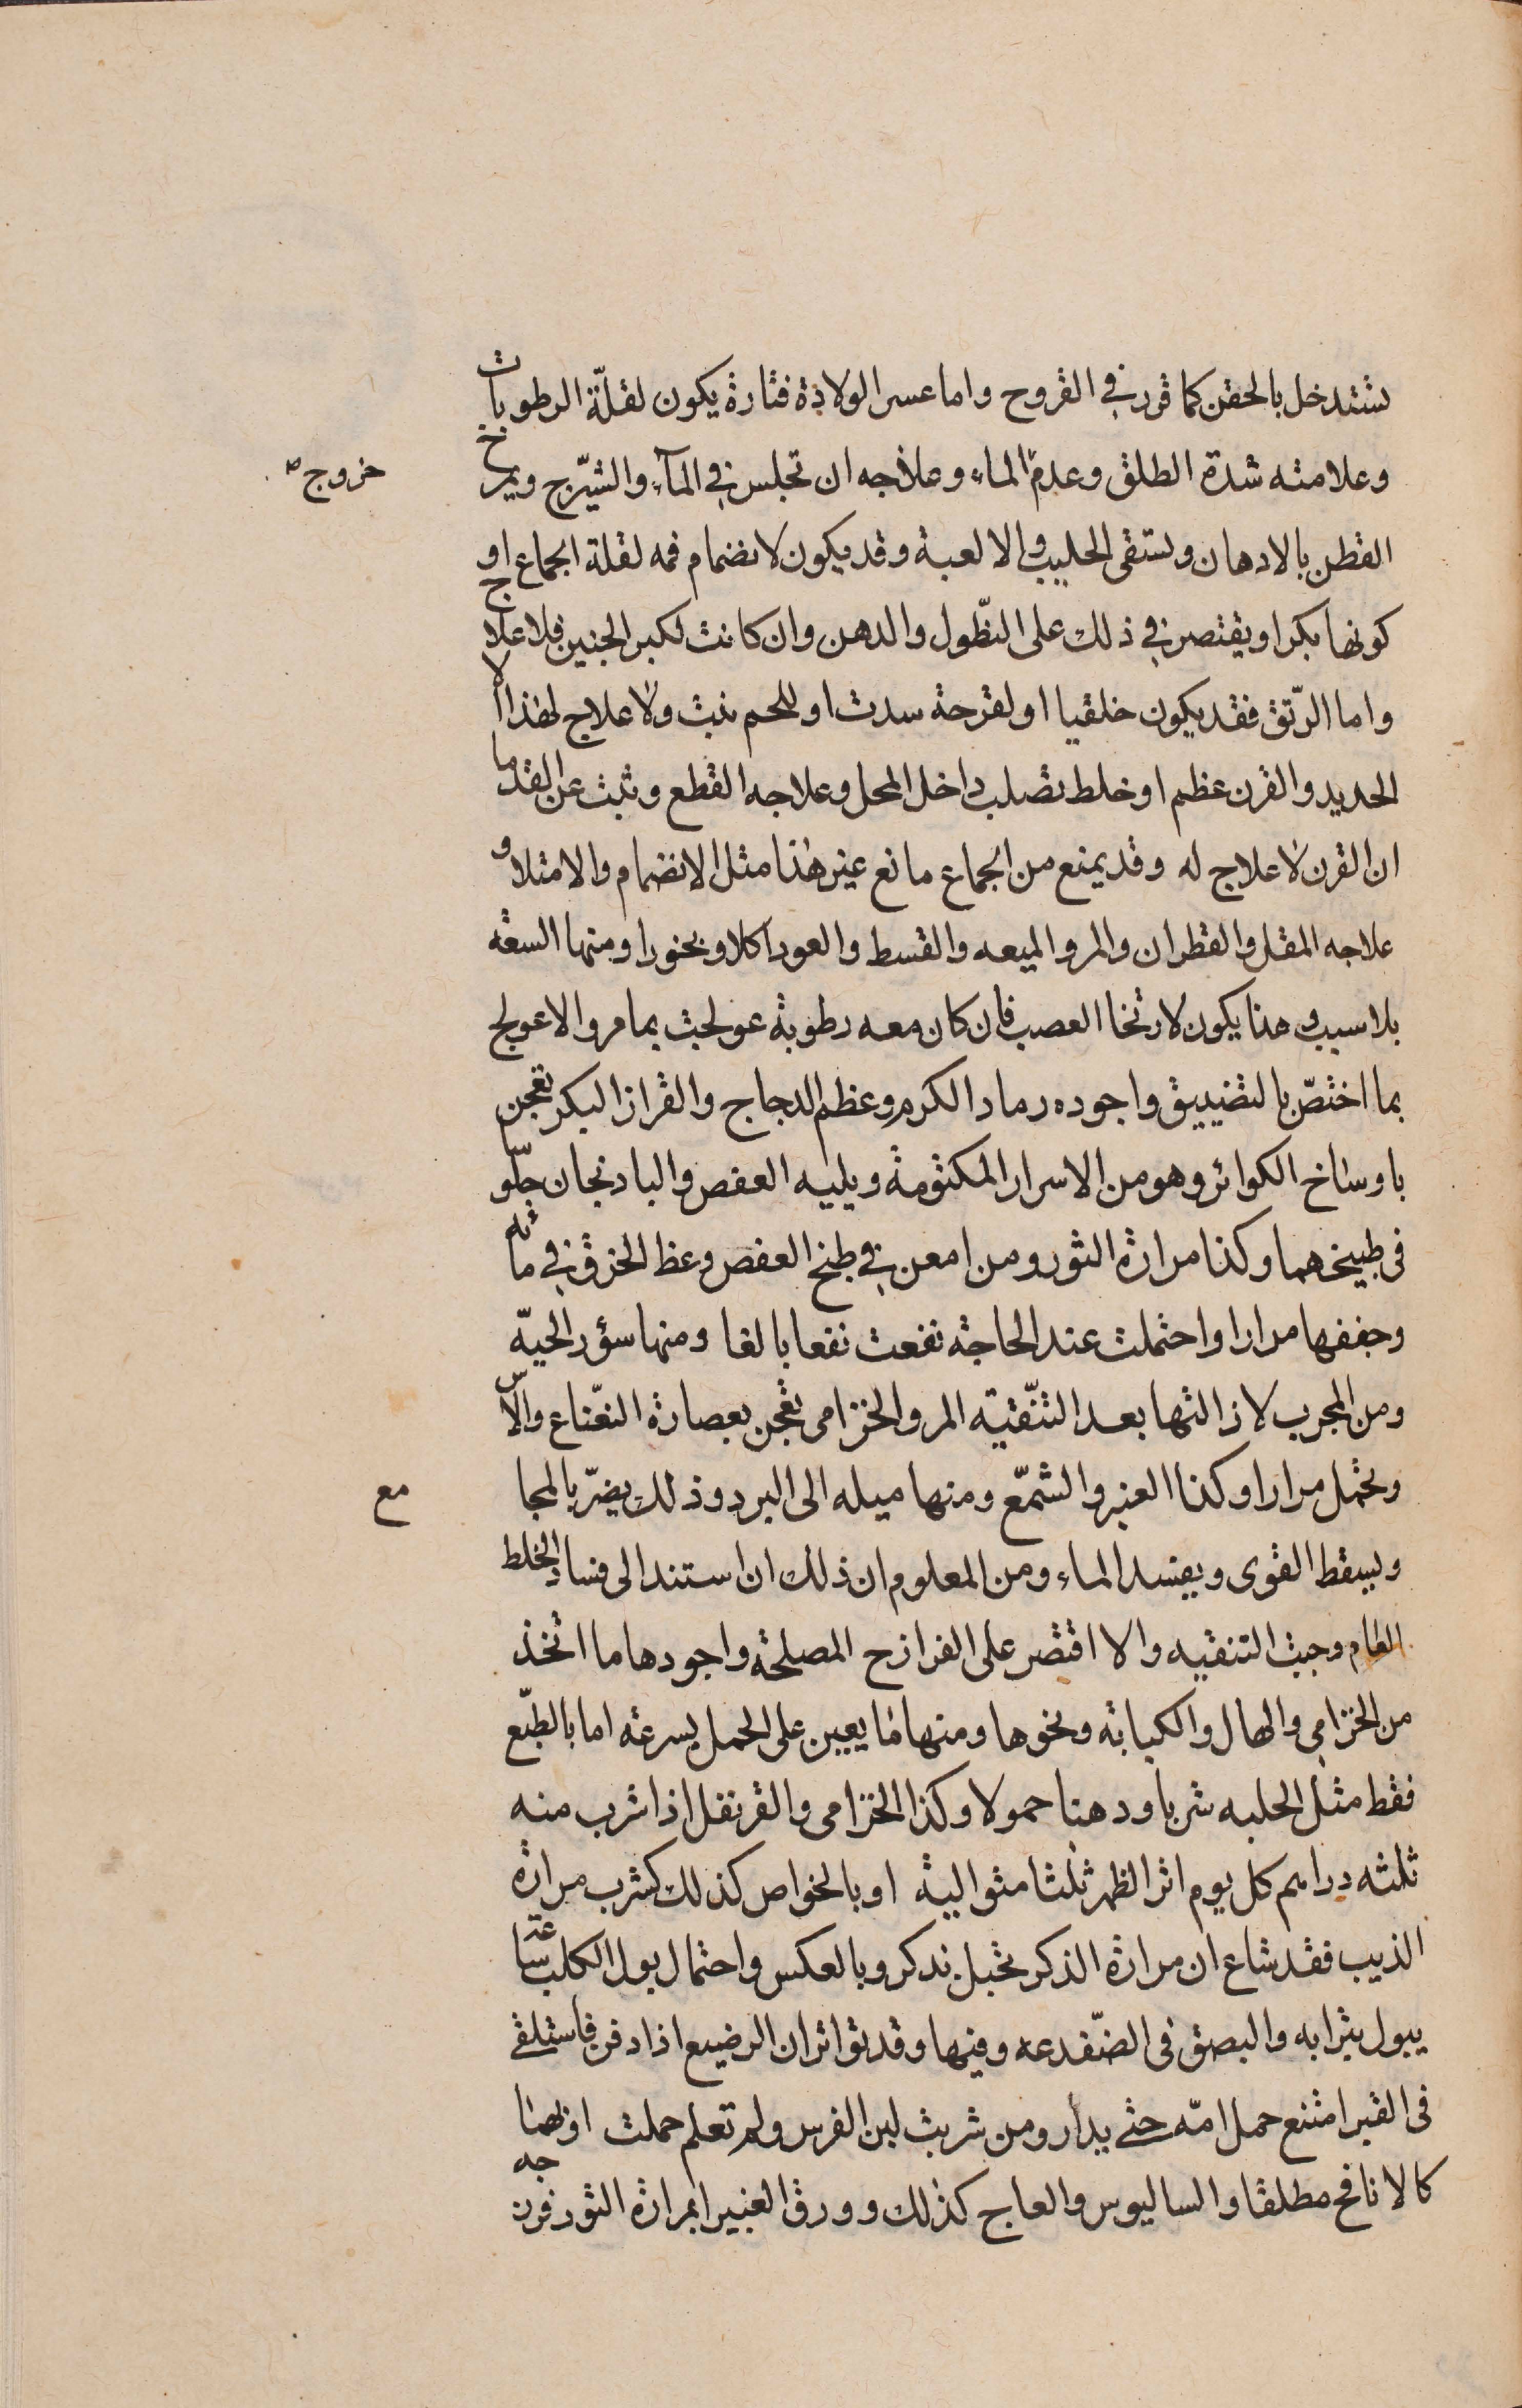 تستدخل بالحقن كما قرر في القروح واما عسر الولادة فتارة يكون لقلّة الرطوبات
وعلامته شدة الطلق وعدم الماء وعلاجه ان تجلس في المآء والشيّرج ويمرخ
خروج صح
القطن بالادهان وتستقى الحليب والالعبة وقد يكون لانضمام فمه لقلة الجماع او
كونها بكرا ويقتصر في ذلك على النّطول والدهن وان كانت لكبر الجنين فلا علاج
واما الرّتق فقد يكون خلقيا او لقرحة سدت او للحم نبت ولا علاج لهذا الا
الحديد والقرن عظم او خلط تصلب داخل المحل وعلاجه القطع وثبت عن القدما
ان القرن لا علاج له وقد يمنع من الجماع مانع غير هذا مثل الانضمام والامتلا و
علاجه المقل والقطران والمر والميعه والقسط والعود اكلا وبخورا ومنها السعة
بلا سبب وهذا يكون لارتخا العصب فان كان معه رطوبة عولجت بما مر والا عولج
بما اختصّ بالتضييق واجوده رماد الكرم وعظم الدجاج والقزاز البكر تعجن
باوساخ الكوائر وهو من الاسرار المكتومة ويليه العفص والبادنجان جلّو
فى طبيخهما وكذا مرارة الثور ومن امعن في طبخ العفص وعظ الخزق في مائه
وجففها مرارا واحتملت عند الحاجة نفعت نفعا بالغا ومنها سؤر الحيّه
ومن المجرب لازالتها بعد التّنقية المر والخزامى تعجن بعصارة النّعناع والآس
وتحمل مرارا وكذا العنبر والشمّع ومنها ميله الى البرد وذلك يضرّ بالمجا
مع
ويسقط القوى ويفسد الماء ومن المعلوم ان ذلك ان استند الى فساد الخلط
العام وجبت التنقيه والا اقتصر على الفرازح المصلحة واجودها ما اتخذ
من الخزامى والهال والكبابة ونحوها ومنها ما يعين على الحمل بسرعة اما بالطبّع
فقط مثل الحلبه شربا ودهنا حمولا وكذا الخزامى والقرنفل اذا شرب منه
ثلثه دراهم كل يوم اثر الطهر ثلثا متوالية او بالخواص كذلك كشرب مرارة
الذيب فقد شاع ان مرارة الذكر تحبل بذكر وبالعكس واحتمال بول الكلب ساعة
يبول بترابه والبصق فى الضّفدعه وفيها وقد تواتر ان الرضيع اذا دفن فاستلقى
فى القبر امتنع حمل امّه حتى يدار ومن شربت لبن الفرس ولم تعلم حملت او بهما
كالانافح مطلقا والساليوس والعاج كذلك وورق الغبيرا بمرارة الثور فرزجه